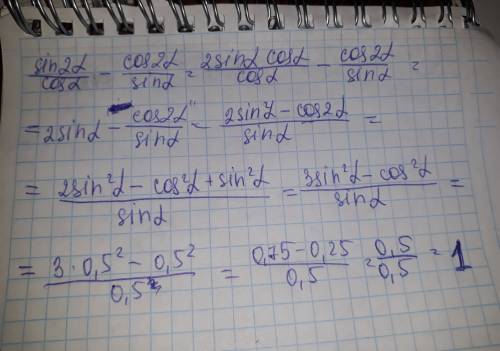 sin2α/cosα - cos2α/sinα = 2sinα cosα/cosα - cos2α/sinα =
= 2sinα - cos2α/sinα = 2sinα - cos2α/sinα =
= 2sin²α - cos²α + sin²α/sinα = 3sin²α - cos²α/sinα =
= 3·0,5² - 0,5²/0,5 = 0,75-0,25/0,5 = 0,5/0,5 = 1